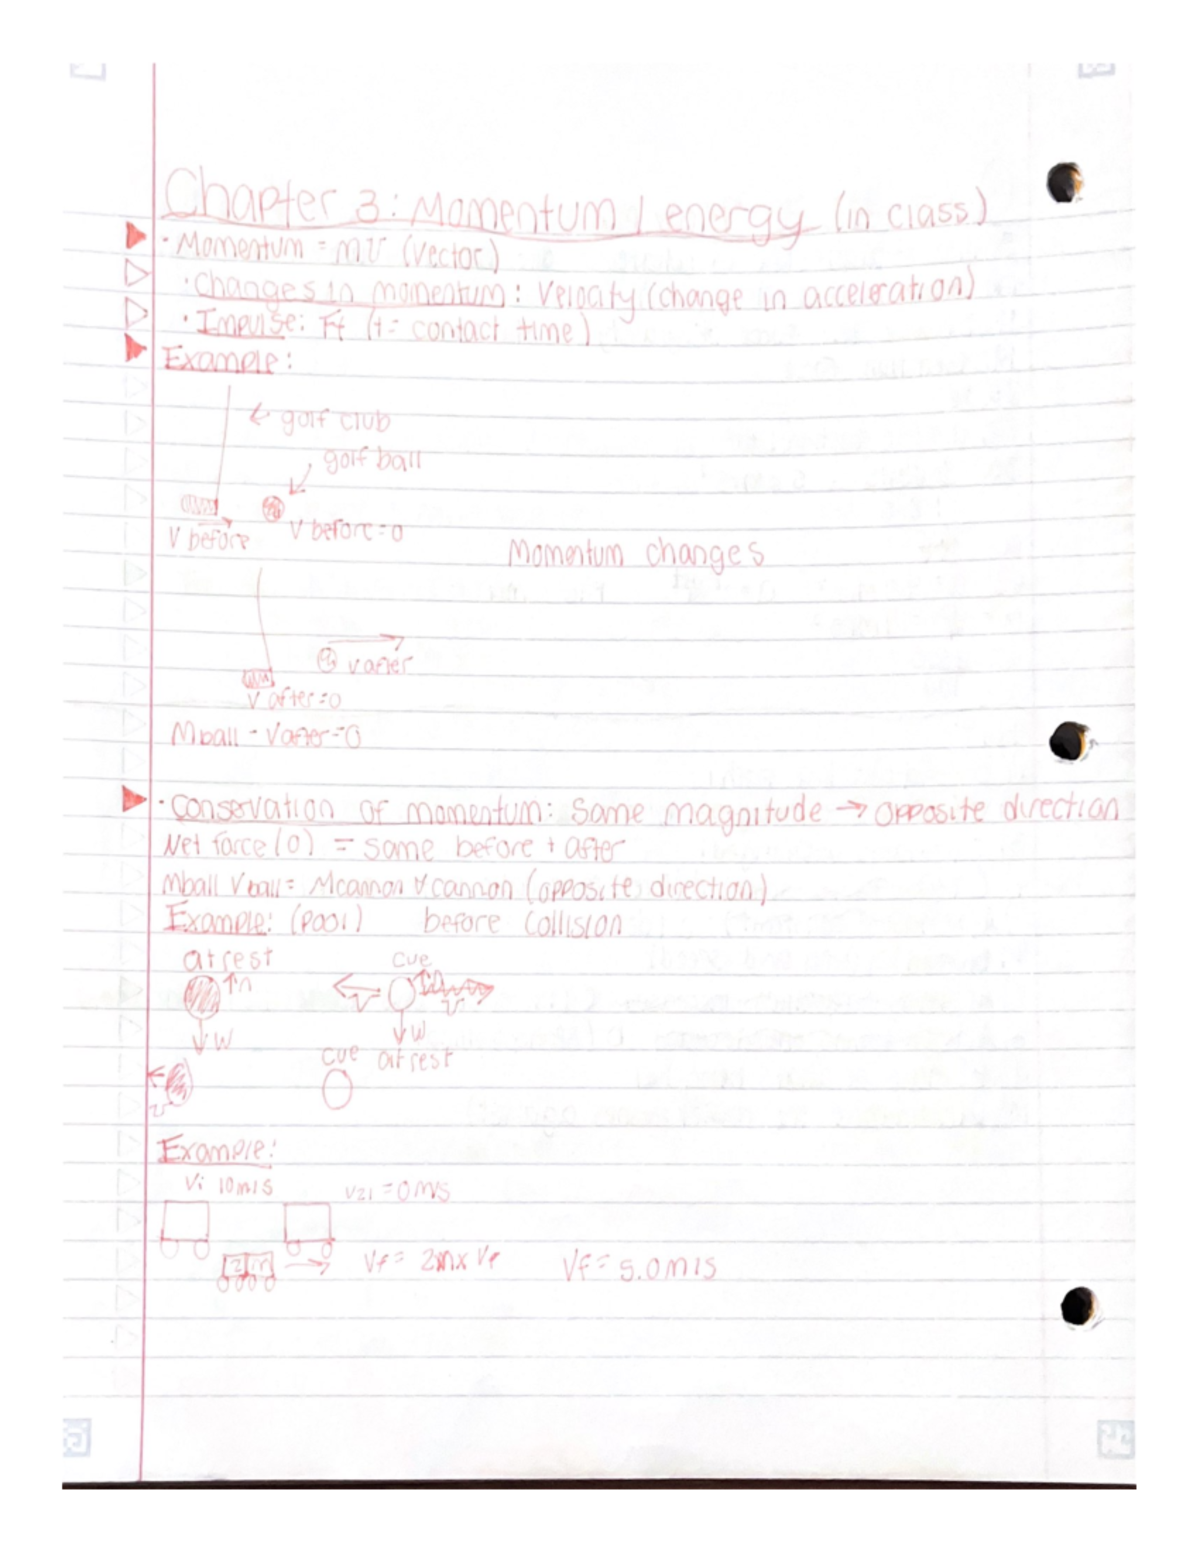 Chapter 3: Momentum / energy (in class)
· Momentum = mv (vector)
· Changes in momentum: Velocity (change in acceleration)
· Impulse: Ft (t = contact time)
Example:
← golf club
golf ball
V before
V before = 0
Momentum changes
V after
V after = 0
Mball - Vafter = 0
· Conservation of momentum: Same magnitude → opposite direction
Net force (0) = same before + after
Mball Vball = Mcannon Vcannon (opposite direction)
Example: (pool) before collision
at rest
cue
n
v
n
v
W
W
cue at rest
v
Example:
Vi 10m/s
V2i = 0m/s
2m
Vf = 2mx Vf
Vf = 5.0m/s